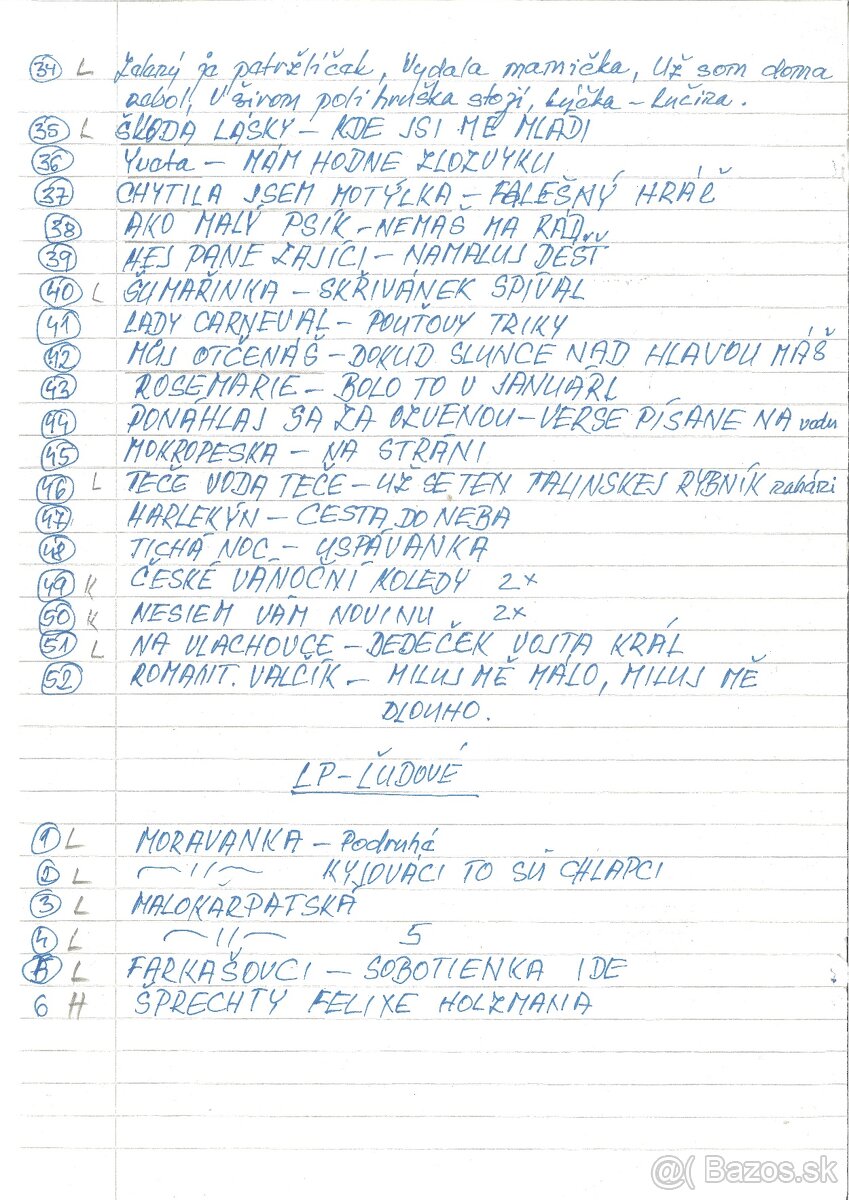 34 L Zelený je petržlíčak, Vydala mamička, Už som doma
nebol, V širom poli hruška stojí, Lýčka - Lučina.
35 L ŠKODA LÁSKY - KDE JSI MÉ MLÁDÍ
36 Yveta - MÁM HODNE ZLOZVYKU
37 CHYTILA JSEM MOTÝLKA - FALEŠNÝ HRÁČ
38 AKO MALÝ PSÍK - NEMAŠ MA RÁD
39 HEJ PANE ZAJÍCI - NAMALUJ DÉŠŤ
40 L ŠUMAŘINKA - SKŘIVÁNEK SPÍVAL
41 LADY CARNEVAL - POUŤOVY TRIKY
42 MŮJ OTČENÁŠ - DOKUD SLUNCE NAD HLAVOU MÁŠ
43 ROSEMARIE - BOLO TO V JANUÁRI
44 PONÁHLAJ SA ZA OZVENOU - VERSE PÍSANE NA vodu
45 MOKROPESKA - NA STRÁNI
46 L TEČE VODA TEČE - UŽ SE TEN TALINSKEJ RYBNÍK zahází
47 HARLEKÝN - CESTA DO NEBA
48 TICHÁ NOC - USPÁVANKA
49 K ČESKÉ VÁNOČNÍ KOLEDY 2x
50 K NESIEM VÁM NOVINU 2x
51 L NA VLACHOVCE - DEDEČEK VOJTA KRÁL
52 ROMANT. VALČÍK - MILUJ MĚ MÁLO, MILUJ MĚ
DLOUHO.
LP - ĽUDOVÉ
1 L MORAVANKA - Podruhá
2 L —11— KYJOVÁCI TO SÚ CHLAPCI
3 L MALOKARPATSKÁ
4 L —11— 5
5 L FARKAŠOVCI - SOBOTIENKA IDE
6 H ŠPRECHTY FELIXE HOLZMANA
@( Bazos.sk